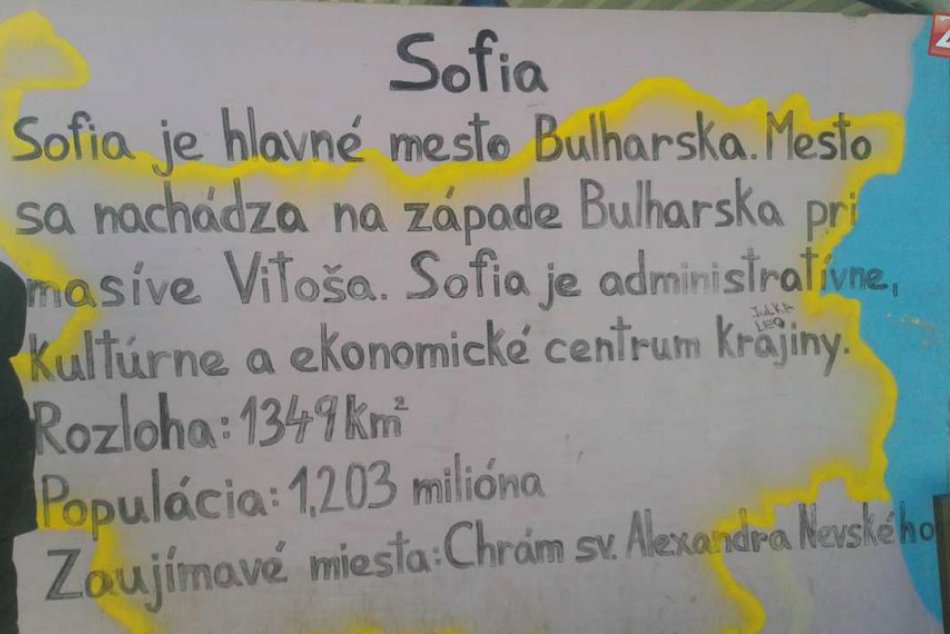 Sofia
Sofia je hlavné mesto Bulharska. Mesto
sa nachádza na západe Bulharska pri
masíve Vitoša. Sofia je administratívne,
JULKA
LEO
kultúrne a ekonomické centrum krajiny.
Rozloha: 1349 km²
Populácia: 1,203 milióna
Zaujímavé miesta: Chrám sv. Alexandra Nevského